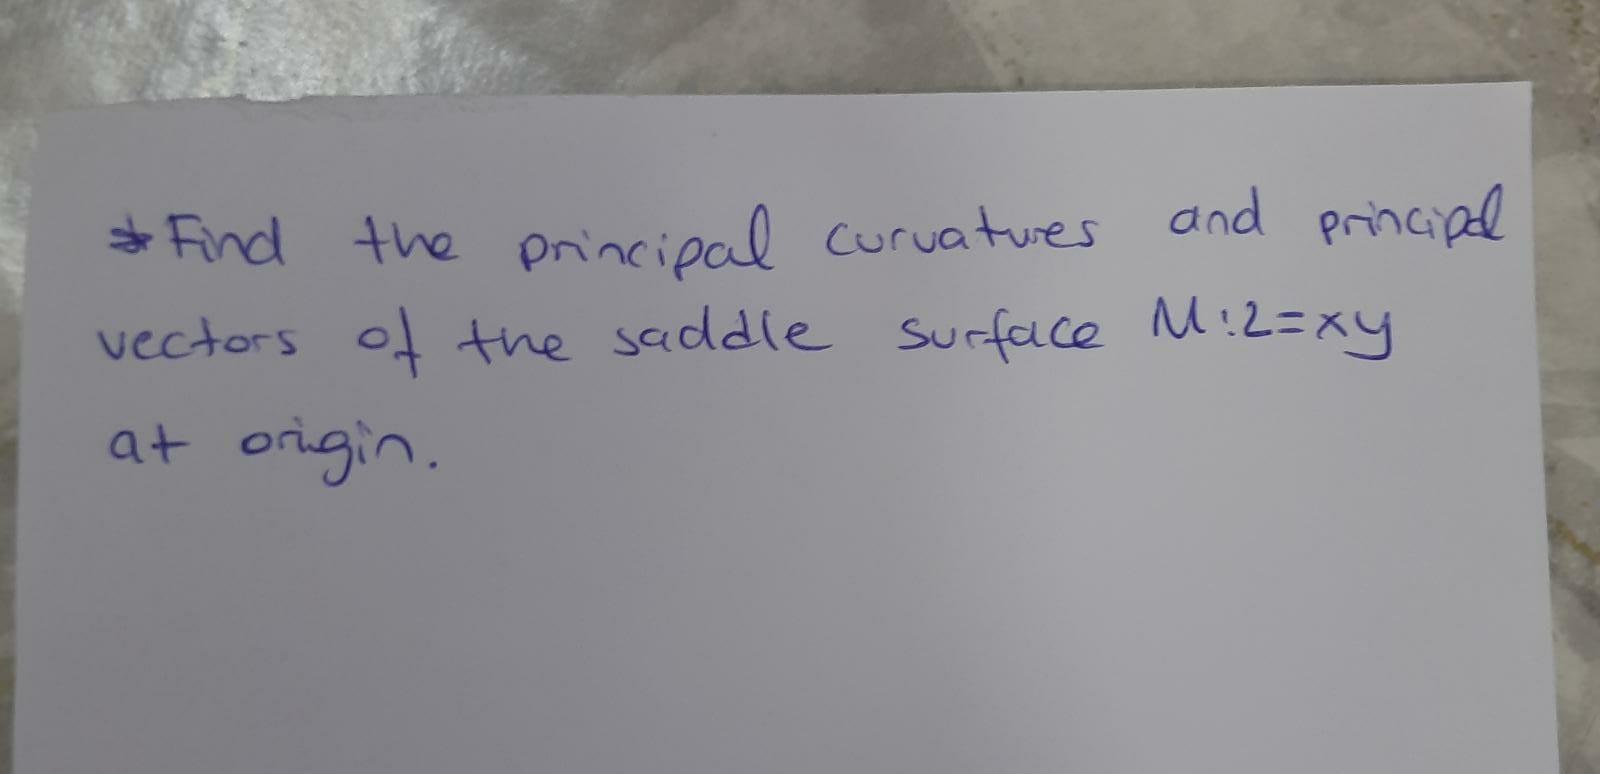 * Find the principal curvatures and principal
vectors of the saddle surface M:z=xy
at origin.